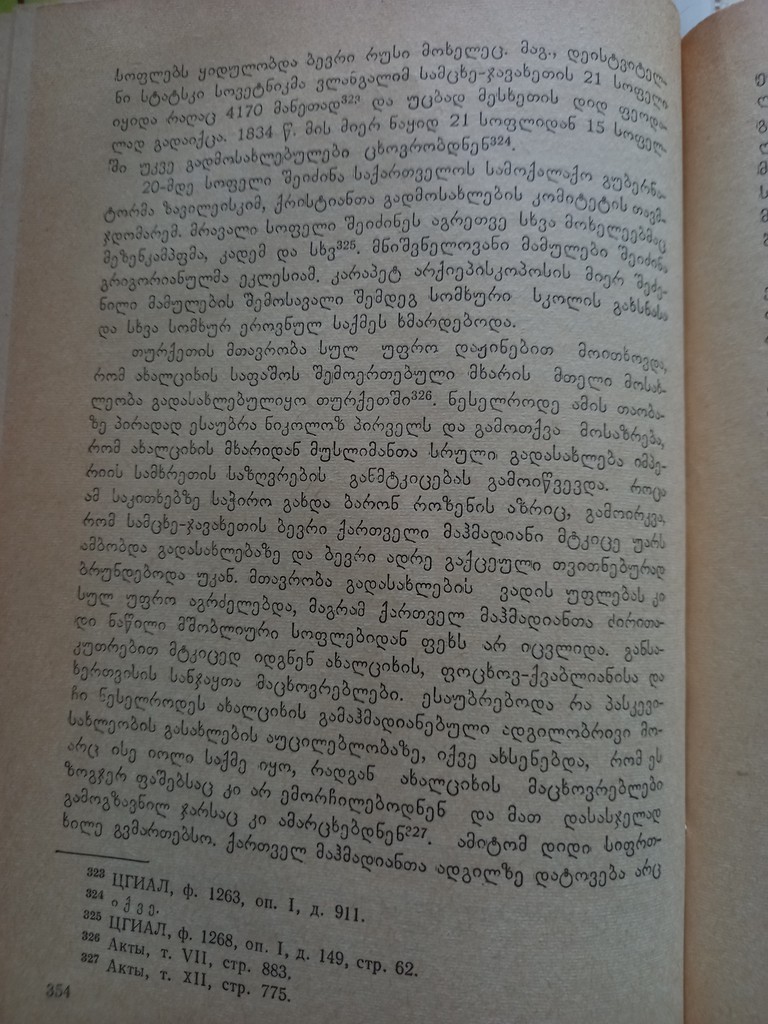 სოფლებს ყიდულობდა ბევრი რუსი მოხელეც. მაგ., დეისტვიტელ-
ნი სტატსკი სოვეტნიკმა ვლანგალიმ სამცხე-ჯავახეთის 21 სოფელი
იყიდა რაღაც 4170 მანეთად³²³ და უცბად მესხეთის დიდ ფეოდა-
ლად გადაიქცა. 1834 წ. მის მიერ ნაყიდ 21 სოფლიდან 15 სოფელ-
ში უკვე გადმოსახლებულები ცხოვრობდნენ³²⁴.
20-მდე სოფელი შეიძინა საქართველოს სამოქალაქო გუბერნა-
ტორმა ზავილეისკიმ, ქრისტიანთა გადმოსახლების კომიტეტის თავმ-
ჯდომარემ. მრავალი სოფელი შეიძინეს აგრეთვე სხვა მოხელეებმაც
მეზენკამპფმა, კადემ და სხვ³²⁵. მნიშვნელოვანი მამულები შეიძინა
გრიგორიანულმა ეკლესიამ. კარაპეტ არქიეპისკოპოსის მიერ შეძე-
ნილი მამულების შემოსავალი შემდეგ სომხური სკოლის გახსნასა
და სხვა სომხურ ეროვნულ საქმეს ხმარდებოდა.
თურქეთის მთავრობა სულ უფრო დაჟინებით მოითხოვდა,
რომ ახალციხის საფაშოს შემოერთებული მხარის მთელი მოსახ-
ლეობა გადასახლებულიყო თურქეთში³²⁶. ნესელროდე ამის თაობა-
ზე პირადად ესაუბრა ნიკოლოზ პირველს და გამოთქვა მოსაზრება,
რომ ახალციხის მხარიდან მუსლიმანთა სრული გადასახლება იმპე-
რიის სამხრეთის საზღვრების განმტკიცებას გამოიწვევდა. როცა
ამ საკითხებზე საჭირო გახდა ბარონ როზენის აზრიც, გამოირკვა,
რომ სამცხე-ჯავახეთის ბევრი ქართველი მაჰმადიანი მტკიცე უარს
ამბობდა გადასახლებაზე და ბევრი ადრე გაქცეული თვითნებურად
ბრუნდებოდა უკან. მთავრობა გადასახლების ვადის უფლებას კი
სულ უფრო აგრძელებდა, მაგრამ ქართველ მაჰმადიანთა ძირითა-
დი ნაწილი მშობლიური სოფლებიდან ფეხს არ იცვლიდა. განსა-
კუთრებით მტკიცედ იდგნენ ახალციხის, ფოცხოვ-ქვაბლიანისა და
ხერთვისის სანჯაყთა მაცხოვრებლები. ესაუბრებოდა რა პასკევი-
ჩი ნესელროდეს ახალციხის გამაჰმადიანებული ადგილობრივი მო-
სახლეობის გასახლების აუცილებლობაზე, იქვე ახსენებდა, რომ ეს
არც ისე იოლი საქმე იყო, რადგან ახალციხის მაცხოვრებლები
ზოგჯერ ფაშებსაც კი არ ემორჩილებოდნენ და მათ დასასჯელად
გამოგზავნილ ჯარსაც კი ამარცხებდნენ²²⁷. ამიტომ დიდი სიფრთ-
ხილე გვმართებსო. ქართველ მაჰმადიანთა ადგილზე დატოვება არც
³²³ ЦГИАЛ, ф. 1263, оп. I, д. 911.
³²⁴ იქვე.
³²⁵ ЦГИАЛ, ф. 1268, оп. I, д. 149, стр. 62.
³²⁶ Акты, т. VII, стр. 883.
³²⁷ Акты, т. XII, стр. 775.
354